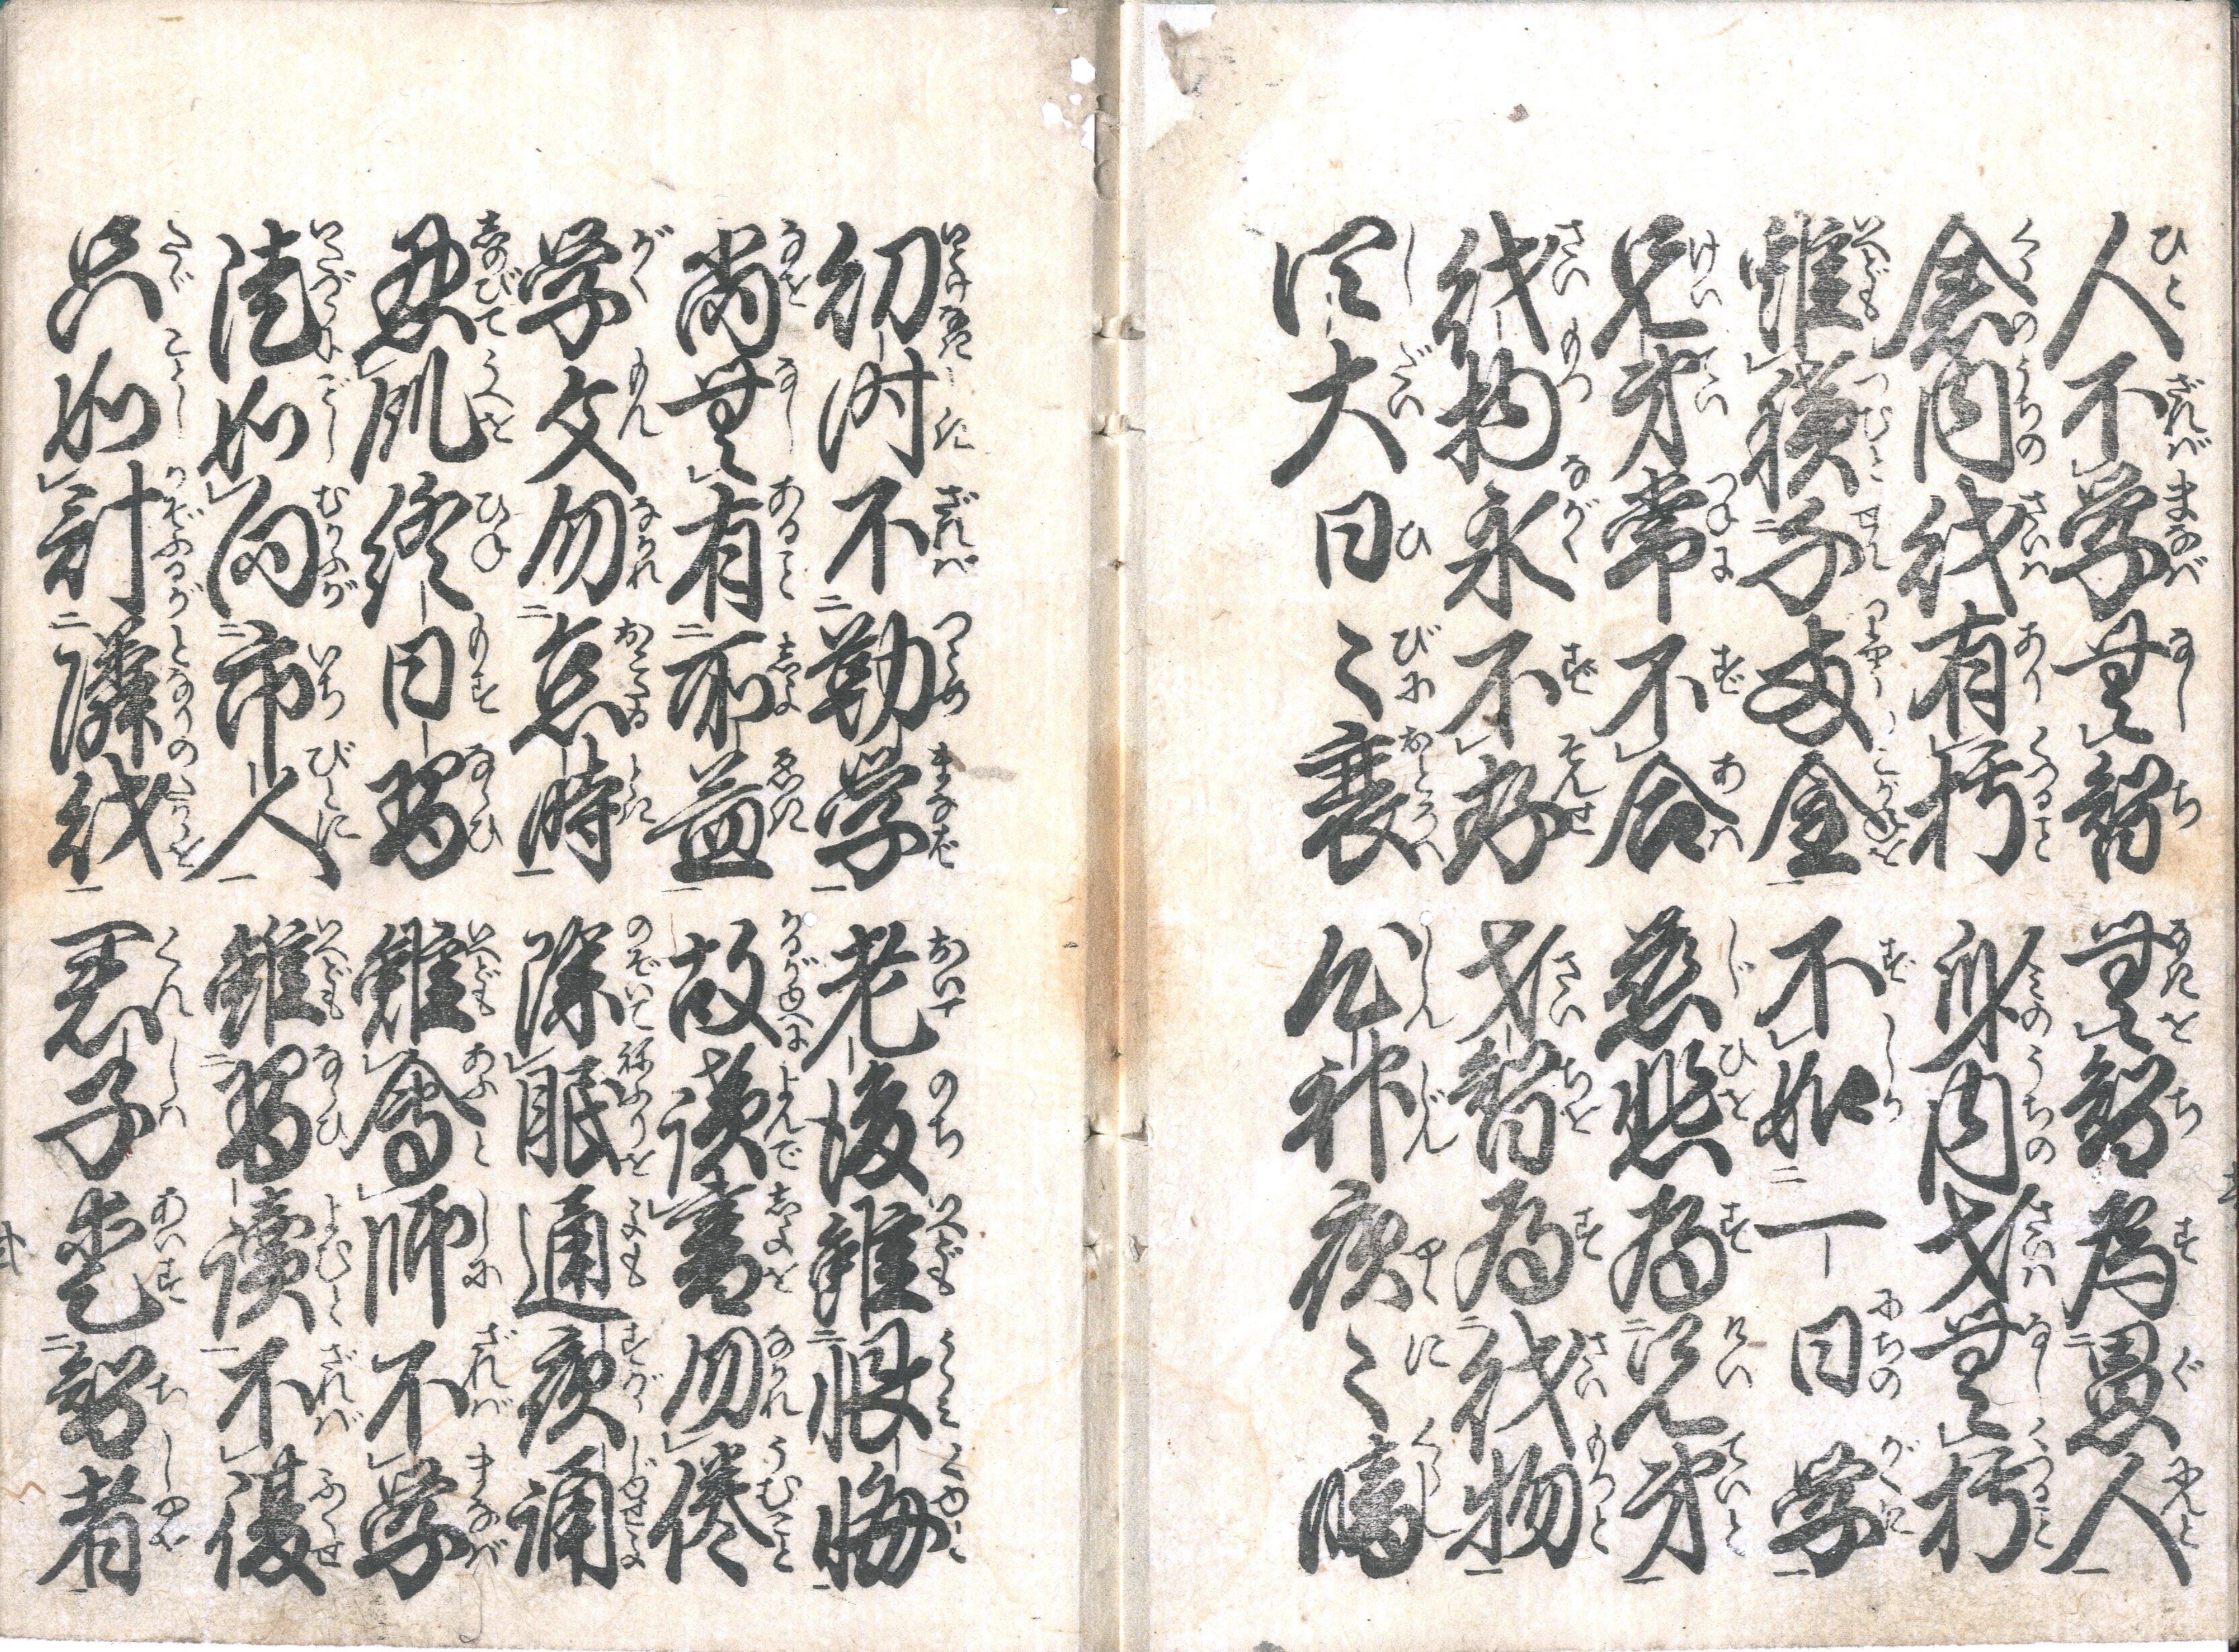 人不学無智　無智為愚人
倉内財有朽　身内才無朽
雖積千両金　不如一日学
兄弟常不合　慈悲為兄弟
財物永不存　才智為財物
四大日々衰　心神夜々暗
幼時不勤学　老後雖恨悔
尚無有所益　故読書勿倦
学文勿怠時　除眠通夜誦
忍飢終日習　雖会師不学
徒如向市人　雖習読不復
只如計隣財　君子愛智者